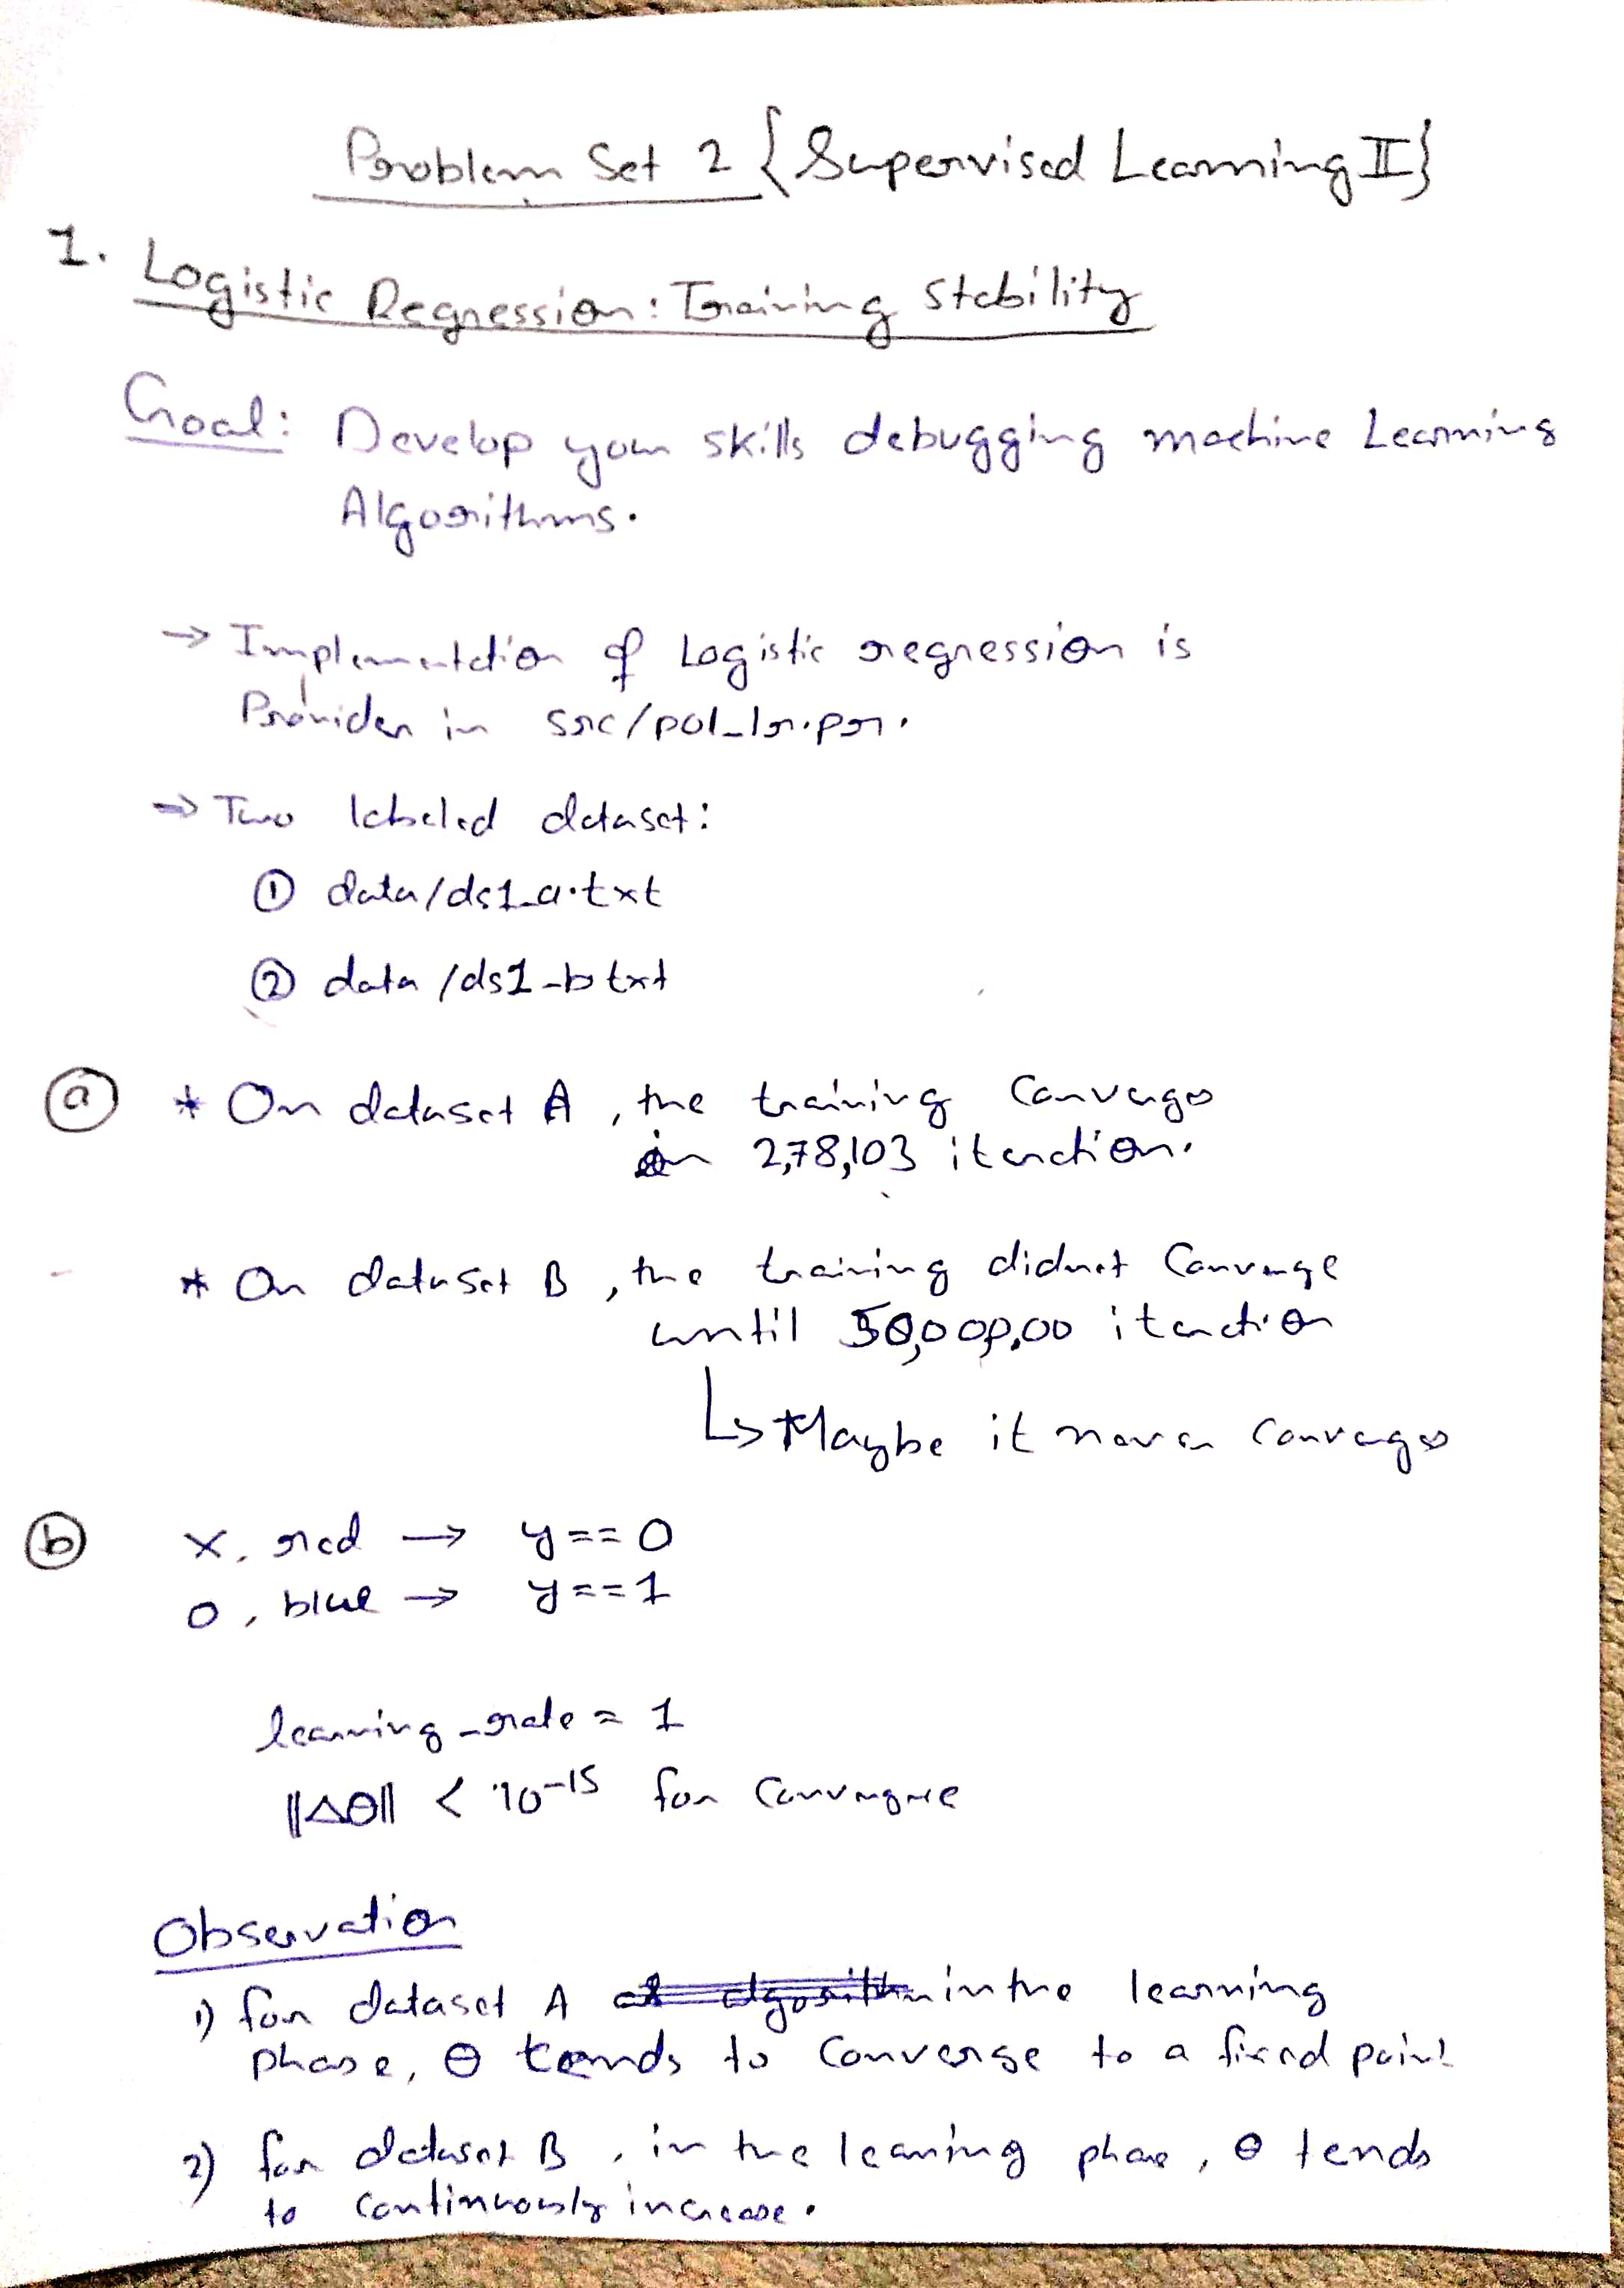 Problem Set 2 {Supervised Learning II}
1. Logistic Regression: Training stability
Goal: Develop your skills debugging machine Learning
Algorithms.
→ Implementation of Logistic regression is
Provided in src/p01_lr.py.
⇒ Two labeled dataset:
① data/ds1_a.txt
② data/ds1_b txt
ⓐ * On dataset A, the training Converges
in 2,78,103 iteration.
* On dataset B, the training didnot Converge
until 50,000,00 iteration
↳ Maybe it never converges
ⓑ x, red → y==0
o, blue → y==1
learning_rate = 1
||Δθ|| < 10⁻¹⁵ for Convergence
Observation
1) for dataset A in the learning
phase, θ tends to Converge to a fixed point
2) for dataset B, in the learning phase, θ tends
to continuously increase.